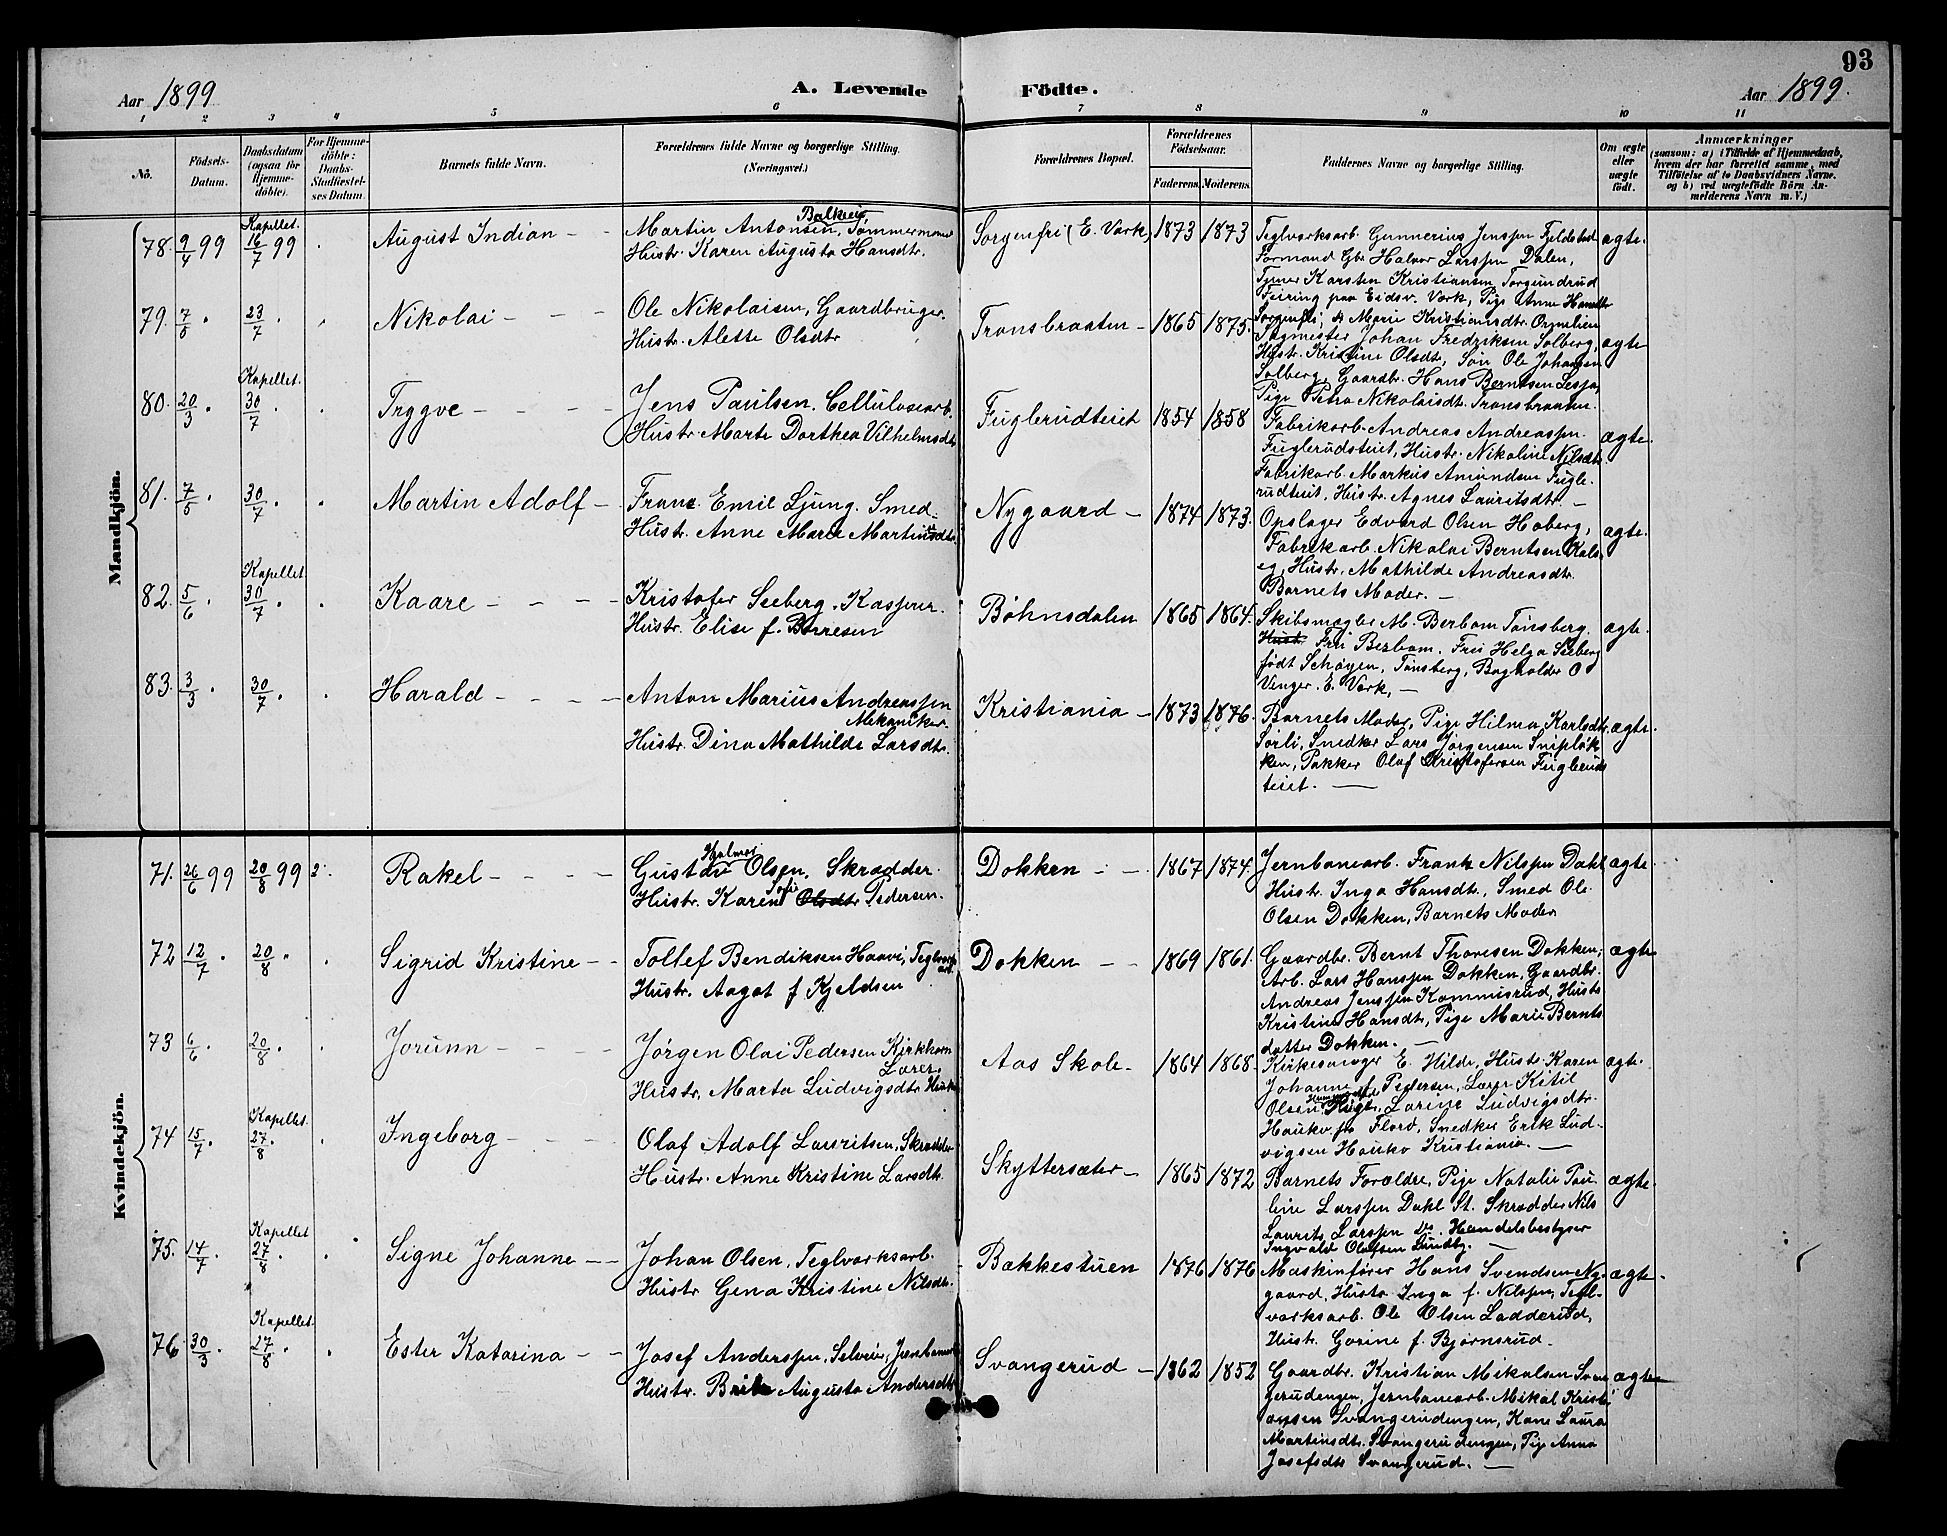 93
Aar 1899
A. Levende Födte.
Aar 1899.
1 2 3 4 5 6 7 8 9 10 11
No.
Födsels-
Datum.
Daabsdatum
(ogsaa for
Hjemme-
döbte).
For Hjemme-
döbte:
Daabs-
Stadfæstel-
ses Datum.
Barnets fulde Navn.
Forældrenes fulde Navne og borgerlige Stilling.
(Næringsvei.)
Forældrenes Bopæl.
Forældrenes
Födselsaar.
Faderens. Moderens.
Faddernes Navne og borgerlige Stilling.
Om ægte
eller
uægte
födt.
Anmærkninger
(saasom: a) i Tilfælde af Hjemmedaab,
hvem der har forrettet samme, med
Tilföielse af to Daabsvidners Navne,
og b) ved uægtefödte Börn An-
melderens Navn m. V.)
Mandkjön.
78. 9/4 99 Kapellet. 16/7 99 August Indian
Martin Antonsen, Tømmermand
Hustr. Karen Augusta Hansdtr.
Sorgenfri (E. Værk) 1873 1873
Teglværksarb. Gunnerius Jenssen Fjeldstad
Formand Gbr. Halvor Larssen Dalen,
Tjener Karsten Kristiansen Torgundrud
Feiring paa Eidsv. Værk, Pige Anne Hansdtr
Sorgenfri, Marie Kristiansdtr.
ægte.
79. 23/7 Nikolai
Ole Nikolaisen, Gaardbruger.
Hustr. Alette Olsdtr
Transbraaten 1865 1875.
Sagmester Johan Fredriksen Solberg,
Hustr. Kristine Olsdtr, Søn Ole Johansen
Solberg, Gaardbr. Hans Berntsen
Pige Petra Nikolaisdtr. Transbraaten.
ægte
80. 20/3 Kapellet. 30/7 Trygve
Jens Paulsen. Cellulosearb.
Hustr. Marte Dorthea Vilhelmsdtr
Fuglerudteiet 1854 1858
Fabrikarb. Andreas Andreassen
Fuglerudsteiet, Hustr. Nikoline Nilsdtr.
Fabrikarb. Markus Amundsen Fugle-
rudteiet, Hustr. Agnes Lauritsdtr.
ægte.
81. 30/7 Martin Adolf
Franz Emil Ljung. Smed.
Hustr. Anne Marie Martinsdtr.
Nygaard 1874 1873.
Opslager Edvard Olsen Hoberg,
Fabrikarb. Nikolai Berntsen Kals-
eg, Hustr. Mathilde Andreasdtr.
Barnets Moder.
ægte.
82. 5/6 Kapellet 30/7 Kaare
Kristofer Seeberg. Kasserer.
Hustr. Elise f. Borresen
Bøhnsdalen 1865 1864.
Skibsmægler M. Berbom Tønsberg.
Fru Berbom. Fru Helga Seeberg
født Schøyen, Tønsberg, Bogholder O
Vinger. E. Værk,
ægte.
83. 3/3 30/7 Harald
Anton Marius Andreassen
Mekaniker.
Hustr. Dina Mathilde Larsdtr.
Kristiania 1873 1876.
Barnets Moder, Pige Hilma Karlsdtr.
Sørli, Snedker Lars Jørgensen Snipløk-
ken, Pakker Olaf Kristofersen Fuglerud-
teiet.
ægte.
Kvindekjön.
71. 26/6 99 20/8 99 Rakel
Gustav Hjalmar Olsen. Skrædder.
Hustr. Karen Sofi Pedersen.
Dokken 1867 1874.
Jernbanearb. Frantz Nilssen Dahl
Hustr. Inga Hansdtr, Smed Ole
Olsen Dokken, Barnets Moder
ægte.
72 12/7 20/8 Sigrid Kristine
Tollef Bendiksen Haavi, Teglværksarb.
Hustr. Aagot f Kjeldsen
Dokken 1869 1861.
Gaardbr. Bernt Thoresen Dokken,
Arb. Lars Hanssen Dokken, Gaardbr.
Andreas Jenssen Kommisrud, Hustr
Kristine Hansdtr, Pige Marie Bernts-
datter Dokken.
ægte
73 6/6 20/8 Jorunn
Jørgen Olai Pedersen Kirkhorn
Lærer.
Hustr. Marta Ludvigsdtr
Aas Skole 1864 1868.
Kirkesanger E. Hilde, Hustr. Karen
Johanne f. Pedersen, Lærer Kitil
Olsen, Larine Ludvigsdtr.
Hauko fra Florø, Snedker Erik Lud-
vigsen Hauko Kristiania.
ægte.
74 15/7 Kapellet. 27/8 Ingeborg
Olaf Adolf Lauritsen, Skrædder
Hustr. Anne Kristine Larsdtr.
Skyttersæter 1865 1872
Barnets Forældre, Pige Natalie Pau-
line Larssen Dahl St. Skrædder Nils
Laurits Larssen Do. Handelsbestyrer
Ingvald Olafsen Lundby.
ægte.
75. 14/7 Kapellet 27/8 Signe Johanne
Johan Olsen, Teglværksarb.
Hustr Gena Kristine Nilsdtr.
Bakkestuen 1876 1876
Maskinfører Hans Svendsen Ny-
gaard, Hustr Inga f. Nilssen, Tegl-
værksarb. Ole Olsen Ladderud,
Hustr. Gorine f. Bjørnsrud.
ægte.
76 30/3 Kapellet. 27/8 Ester Katarina
Josef Anderssen, Jernbanearb
Hustr. Augusta Andersdtr
Svangerud 1862 1852
Gaardbr. Kristian Mikalsen Svan-
gerudengen, Jernbanearb. Mikal Kristi-
anssen Svangerudengen, Kone Laura
Martinsdtr. Svangerudengen, Pige Anna
Josefsdtr Svangerud.
ægte